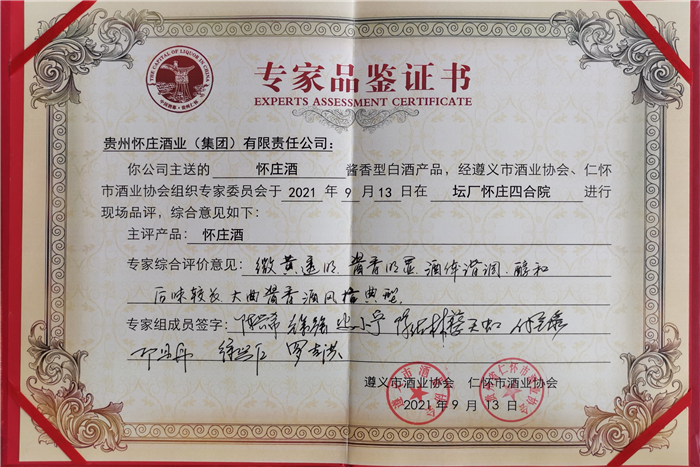 THE CAPITAL OF LIQUOR IN CHINA
中国酒都·贵州仁怀
专家品鉴证书
EXPERTS ASSESSMENT CERTIFICATE
贵州怀庄酒业（集团）有限责任公司：
你公司主送的 怀庄酒 酱香型白酒产品，经遵义市酒业协会、仁怀
市酒业协会组织专家委员会于 2021 年 9 月 13 日在 坛厂怀庄四合院 进行
现场品评，综合意见如下：
主评产品： 怀庄酒
专家综合评价意见： 微黄透明、酱香明显、酒体谐调、醇和
后味较长 大曲酱香酒风格典型。
专家组成员签字：
遵义市酒业协会 仁怀市酒业协会
2021 年 9 月 13 日